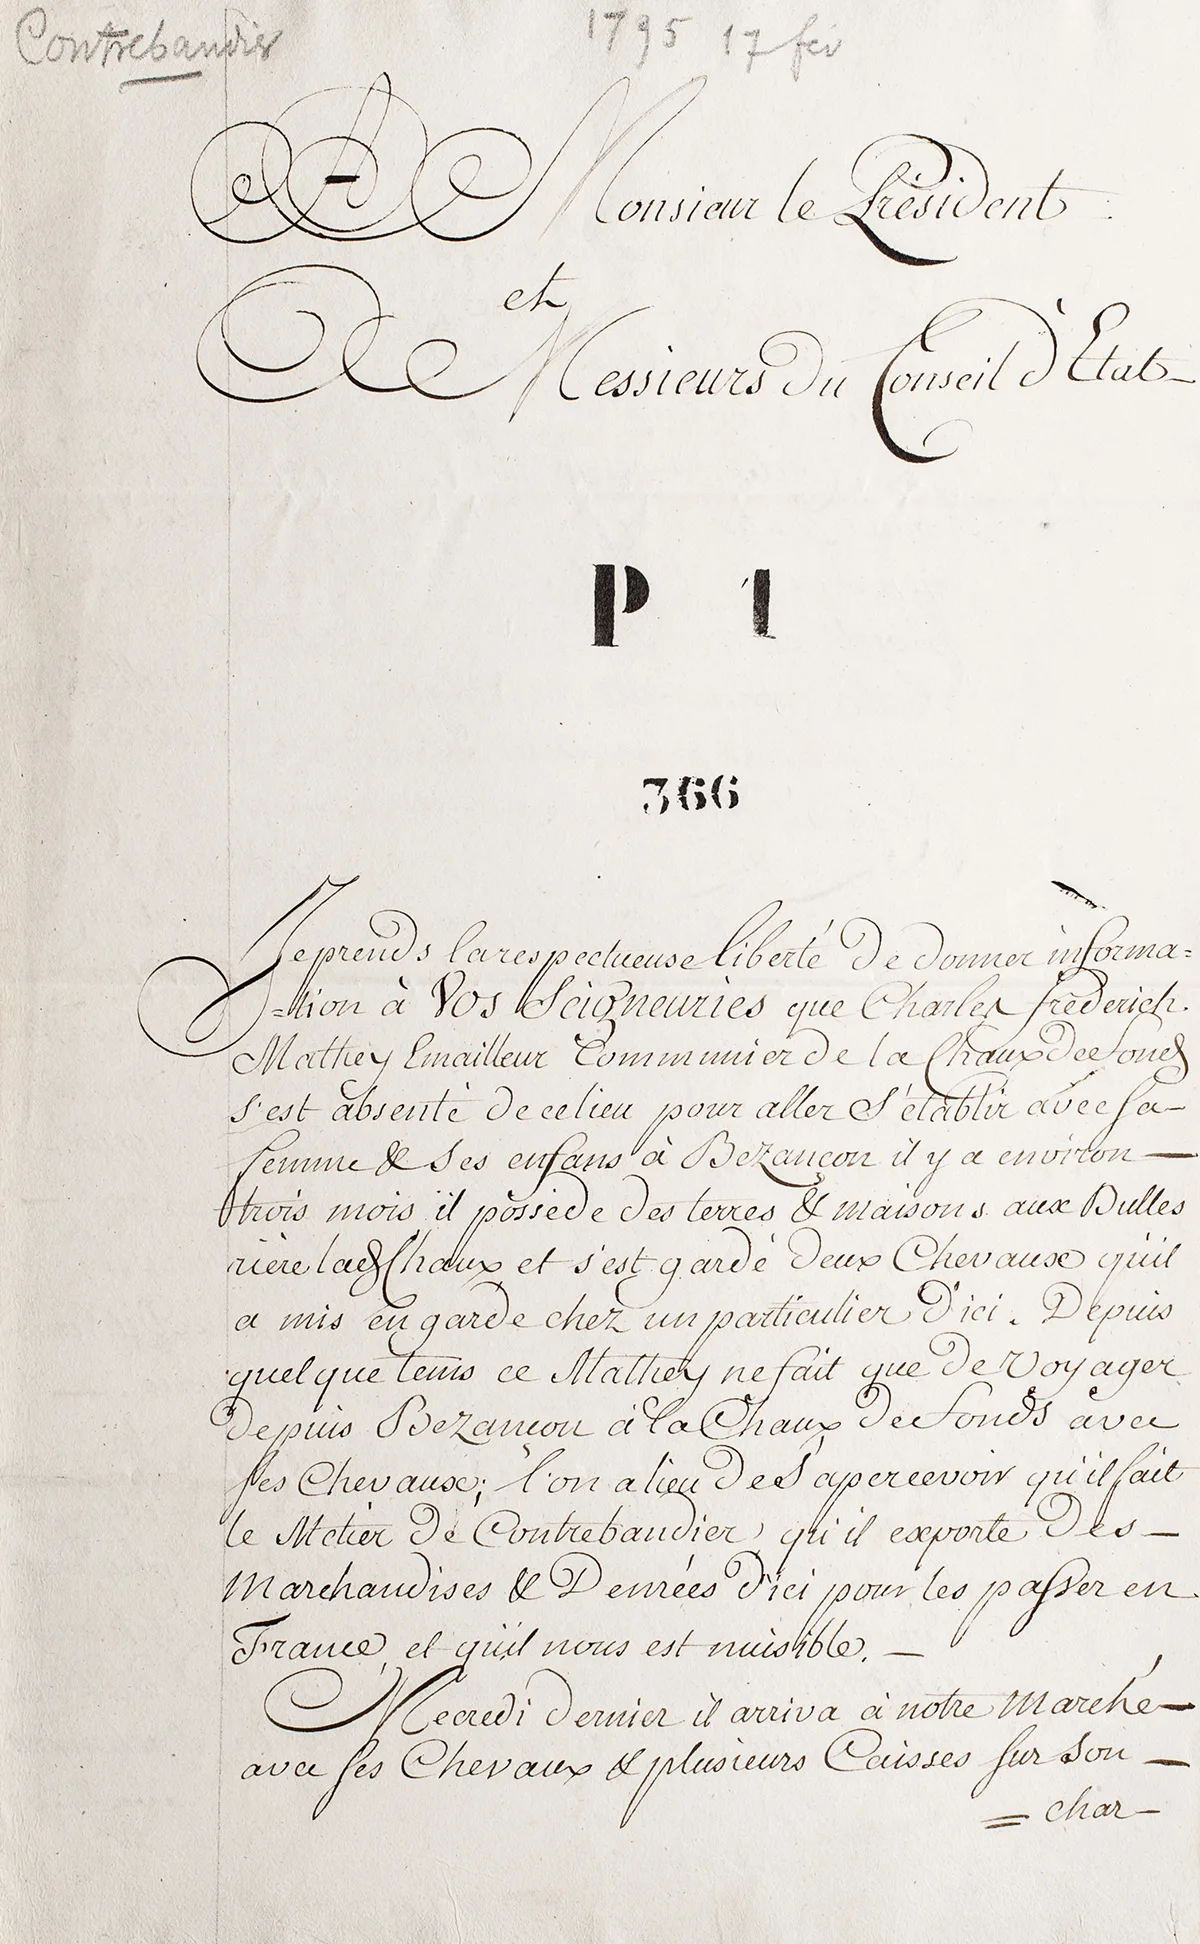 Contrebandier
1795 17 fev
A Monsieur le Président
et
Messieurs du Conseil d'Etat
P 1
366
Je prends la respectueuse liberté de donner informa=
=tion à Vos Seigneuries que Charles frederich
Mathey Emailleur Communier de la Chaux de fonds
s'est absenté de ce lieu pour aller s'établir avec sa
femme & ses enfans à Bezançon il y a environ
trois mois il possède des terres & maisons aux Bulles
rière la d Chaux et s'est gardé deux Chevaux qu'il
a mis en garde chez un particulier d'ici. Depuis
quelque tems ce Mathey ne fait que de voyager
depuis Bezançon à la Chaux de fonds avec
ses Chevaux; l'on a lieu de s'apercevoir qu'il fait
le Métier de Contrebandier, qu'il exporte des
Marchandises & Denrées d'ici pour les passer en
France, et qu'il nous est nuisible.
Mecredi dernier il arriva à notre marché
avec ses Chevaux & plusieurs Caisses sur son
= char